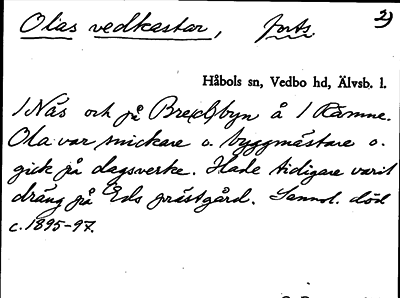 Olas vedkastar, forts. 2)
Håbols sn, Vedbo hd, Älvsb. l.
1 Nås och på Bre(ck)byn å 1 Rämne.
Ola var snickare o. byggmästare o.
gick på dagsverke. Hade tidigare varit
dräng på Eds prästgård. Sannol. död
c. 1895-97.